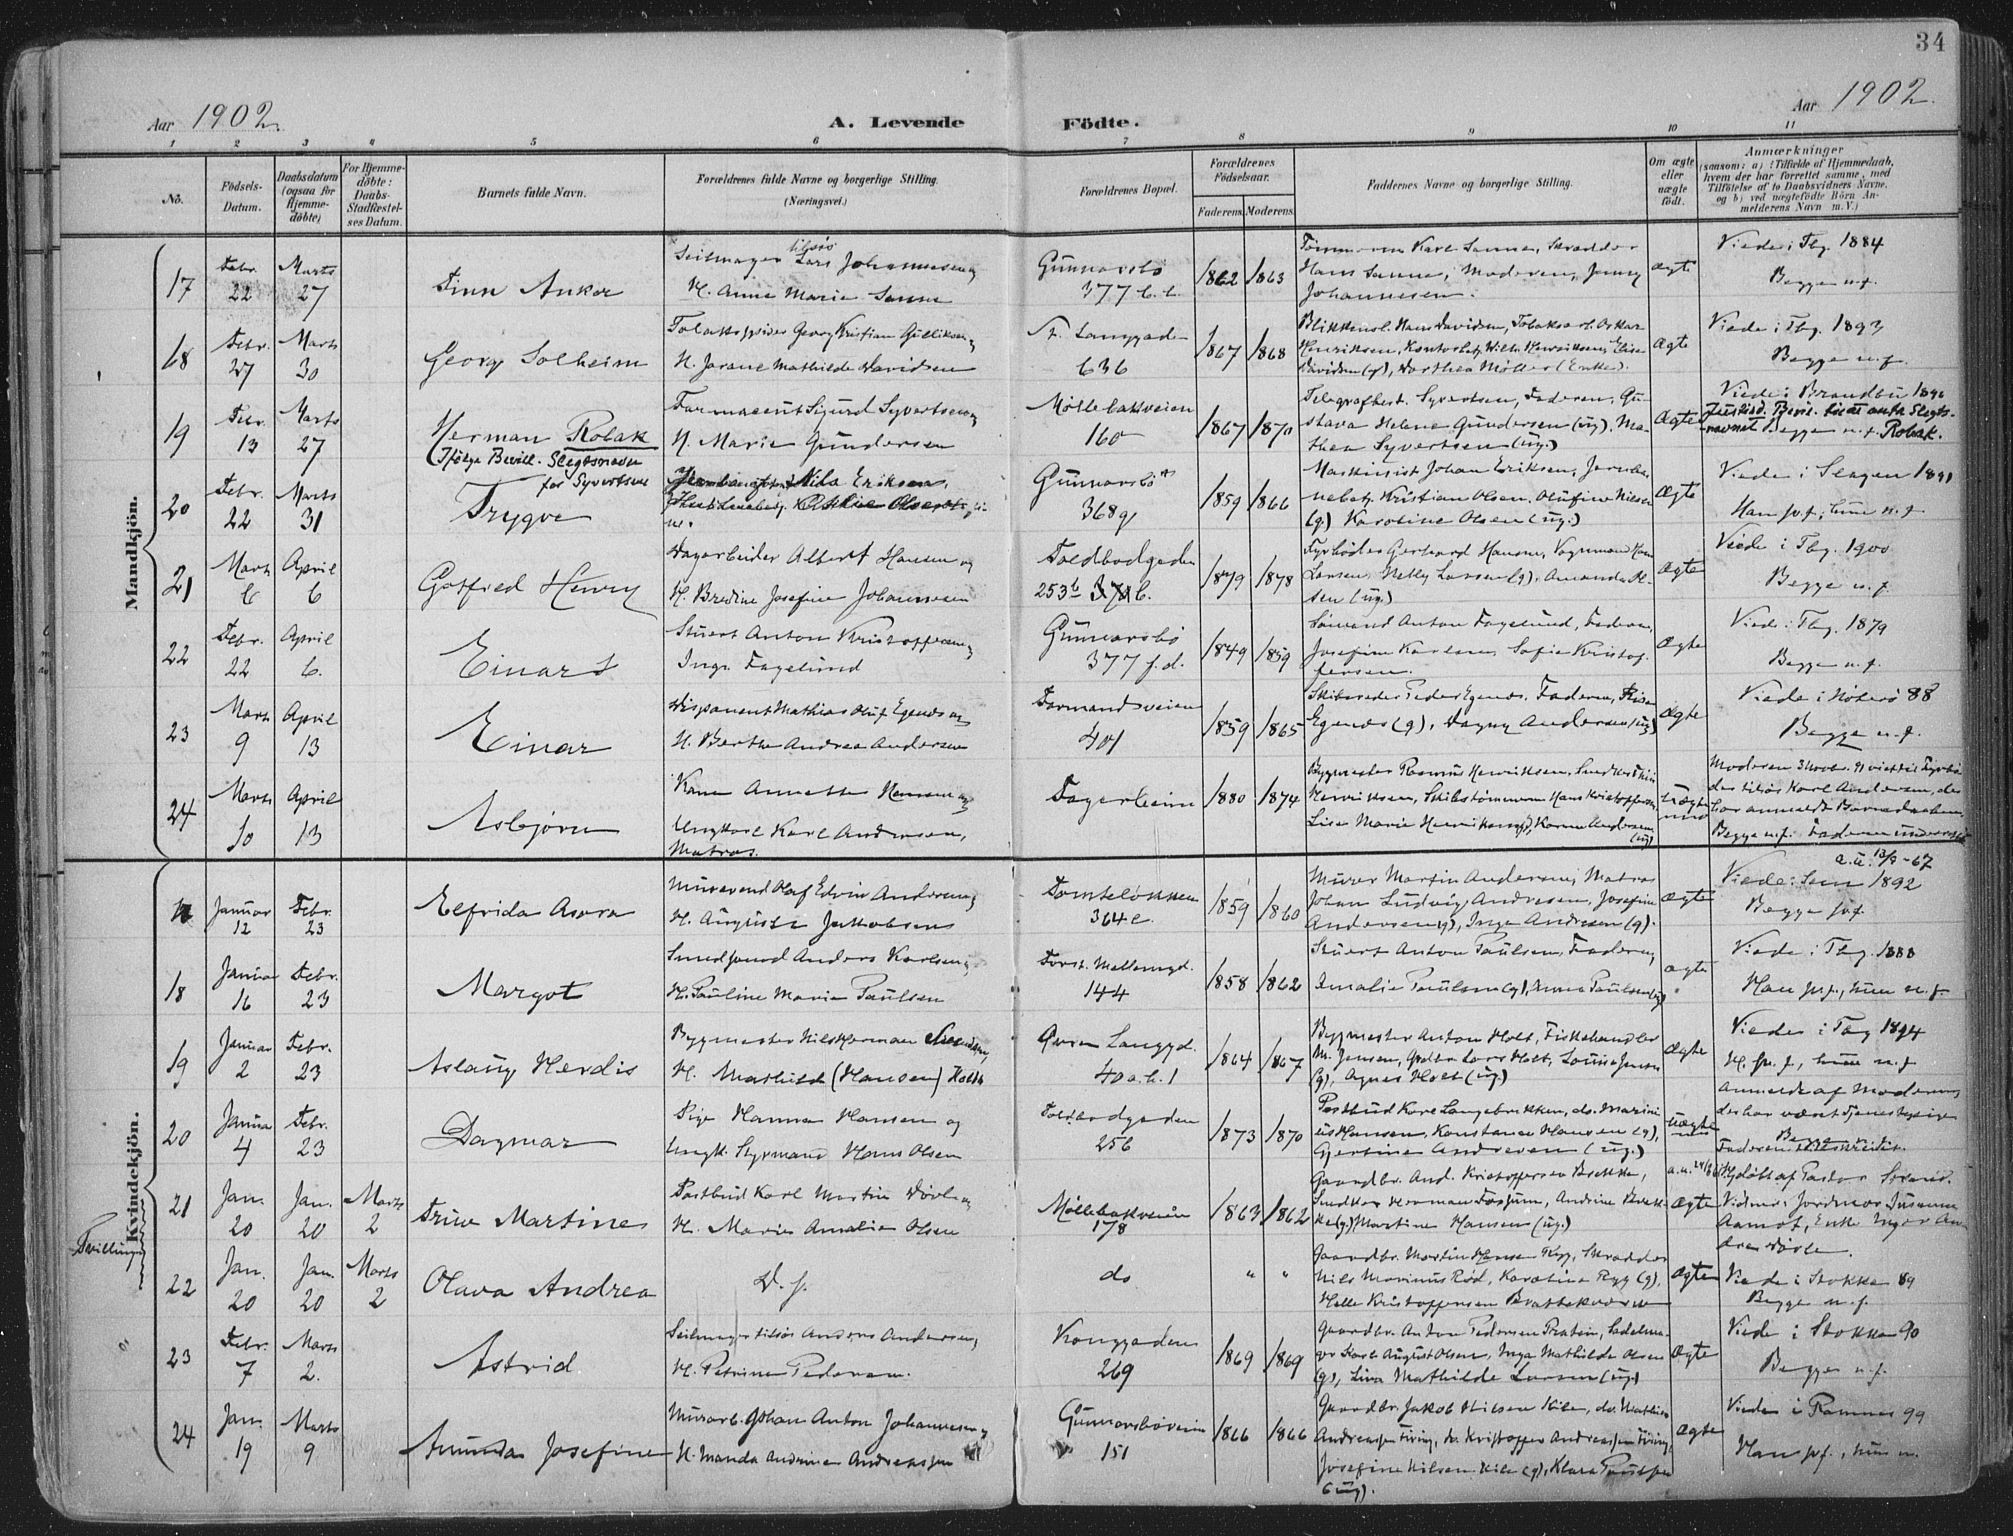 34
Aar 1902.
A. Levende
Födte.
Aar 1902.
1 2 3 4 5 6 7 8 9 10 11
No.
Födsels-
Datum.
Daabsdatum
(ogsaa for
Hjemme-
döbte)
For Hjemme-
döbte:
Daabs-
Stadfæstel-
ses Datum.
Barnets fulde Navn.
Forældrenes fulde Navne og borgerlige Stilling.
(Næringsvei.)
Forældrenes Bopæl.
Forældrenes
Födselsaar.
Faderens.
Moderens.
Faddernes Navne og borgerlige Stilling.
Om ægte
eller
uægte
födt.
Anmærkninger
(saasom: a) i Tilfælde af Hjemmedaab,
hvem der har forrettet samme, med
Tilföielse af to Daabsvidners Navne,
og b) ved uægtefödte Börn An-
melderens Navn m.V.)
Mandkjön.
17 Febr. 22 Marts 27
Finn Anker
Seilmager tilsøs Lars Johannesen og
H. Anne Marie Sanne
Gunnarsbö
377 b. b.
1862 1863
Tømmerm Karl Sanne, Skrædder
Hans Sanne, Moderen, Jenny
Johannesen.
Ægte
Viede i Tbg. 1884
Begge n.f.
18 Febr. 27 Marts 30
Georg Solheim
Tobaksspinder Georg Kristian Gulliksen og
H. Jorane Mathilde Davidsen
N. Langgaden
636
1867 1868
Blikkensl. Hans Davidsen, Tobaksarb. Oskar
Henriksen, Kontorbetj. Wilh. Henriksen, Elise
Davidsen (g), Dorthea Møller (Enke).
Ægte
Viede i Tbg. 1893
Begge n.f.
19 Febr. 13 Marts 27
Herman Robak
(Ifølge Bevill. Slegtsnavn
for Syvertsen
Farmaceut Sigurd Syvertsen og
H. Marie Gundersen
Møllebakveien
160
1867 1870
Telegrafbest. Syvertsen, Faderen, Gu-
stava Helene Gundersen (ug). Ma-
thea Syvertsen (ug.)
Ægte
Viede i Brandbu
Begge n.f. Robak.
20 Febr. 22 Marts 31
Trygve
Nils Eriksen,
Gunnarsbö
368g
1859 1866
Maskinist Johan Eriksen, Jernba-
nebetj. Kristian Olsen, Olufine Nilsen
(g) Karoline Olsen (ug.)
Ægte
Viede i Slagen 1891
Han st.f., hun n.f.
21 Marts 6 April 6
Gotfred Henry
Dagarbeider Albert Hansen og
H. Bredine Josefine Johannesen
Toldbodgaden
253b
1879 1878
Fyrbøder Gerhard Hansen, Vognmand
Larsen, Nelly Larsen (g). Amanda Ol-
sen (ug.)
Ægte
Viede i Tbg. 1900
Begge n.f.
22 Febr. 22 April 6.
Einar
Stuert Anton Kristoffersen og
Inga Fagelund
Gunnarsbö
377 f. d.
1849 1859
Sømand Anton Fagelund, Faderen,
Josefine Karlsen, Sofie Kristof-
fersen.
Ægte
Viede i Tbg. 1879
Begge n.f.
23 Marts 9 April 13
Einar
Disponent Mathias Oluf Egenæs og
H. Berthe Andrea Andersen
Formandsveien
401
1859 1865
Skibsreder Peder Egenæs, Faderen,
Egenæs (g), Dagny Andersen (ug)
Ægte
Viede i Nøterø 88
Begge n.f.
24 Marts 10 April 13
Asbjörn
Kone Annette Hansen og
Ungkarl Karl Andersen,
Matros.
Fagerheim
1880 1874
Bygmester Rasmus Henriksen,
Henriksen, Skibstømmerm Hans Kristoffersen,
Lise Marie Henriksen (g), Karen Andersen
(ug)
Uægte
Moderen 3 Novb. 91 viet til Fyrbø-
der tilsøs Karl Andersen, der
har anmeldt Barnedaaben.
Begge n.f.
Kvindekjön.
17 Januar 12 Febr. 23
Elfrida Asora
Murersvend Olaf Edvin Andersen og
H. Auguste Jakobsen
Tomteløkken
364 e
1859 1860
Murer Martin Andersen, Matros
Johan Ludvig Andresen, Josefine
Andersen (g), Inga Andresen (g).
Ægte
Viede i Sem 1892
Begge st.f.
18 Januar 16 Febr. 23
Margot
Smedsvend Anders Karlsen og
H. Pauline Marie Paulsen
Forst. Mellemgd.
144
1858 1862
Stuert Anton Paulsen, Faderen,
Amalie Paulsen (g), Anna Paulsen (ug)
Ægte
Viede i Tbg. 1888
Han st.f., hun n.f.
19 Januar 2 Febr. 23
Aslaug Herdis
Bygmester Nils Herman Svendsen,
H. Mathilde (Hansen) Holt
Øvre Langgd.
40 a. b. 1
1864 1867
Bygmester Anton Holt, Fiskehandler
M. Jensen, Lars Holt, Lovise Jensen
(g), Agnes Holt (ug.)
Ægte
Viede i Tbg 1894
H. st. f, hun n.f
20 Januar 4 Febr. 23
Dagmar
Pige Hanna Hansen og
Ungk. Styrmand Hans Olsen
Toldbodgaden
256
1873 1870
Postbud Karl Langebrekken, do. Marini-
us Hansen, Konstance Hansen (g),
Gjertine Andresen (ug.)
Uægte
Anmeldt af Moderen,
der har været Tjenestepige
Begge
21 Jan. 20 Jan. 20 Marts 2
Trine Martine
Postbud Karl Martin Dovle og
H. Maria Amalia Olsen
Møllebakveien
178
1863 1862
Gaardbr. And. Kristoffersen Brekke,
Snedker Herman Fossum, Andrine Brek-
ke (g.) Martine Hansen (ug.)
Ægte
Hjdöbt af Pastor Strand.
Vidner: Jordmor Susanne
Aamot, Enke Inger An-
drea Dovle.
Tvillinger
22 Jan. 20 Jan. 20 Marts 2
Olava Andrea
D. s.
do. " "
Gaardbr. Martin Hansen Ryg, Skrædder
Nils Marinus Rød, Karoline Ryg (g),
Helle Kristoffersen Brattekværn
Ægte
Viede i Stokke 89
Begge n.f.
23 Febr. 7 Marts 2.
Astrid
Seilmager tilsös Anders Andersen,
H. Petrine Pedersen.
Kongegaden
269
1869 1869
Gaardbr. Anton Pedersen Bratein, Sadelma-
ger Karl August Olsen, Inga Mathilde Olsen
(g), Lina Mathilde Larsen (ug)
Ægte
Viede i Stokke 90
Begge n.f.
24 Jan. 19 Marts 9
Amunda Josefine
Murarb. Johan Anton Johannesen og
H. Manda Andrine Andreassen
Gunnarsbøveien
151
1866 1866
Gaardbr. Jakob Nilsen Kile, do. Mathias
Andreassen Firing, do. Kristoffer Andreassen Firing,
Josefine Nilsen Kile (g), Klara Paulsen
(ug).
Ægte
Viede i Ramnes 99
Han st.f., hun n.